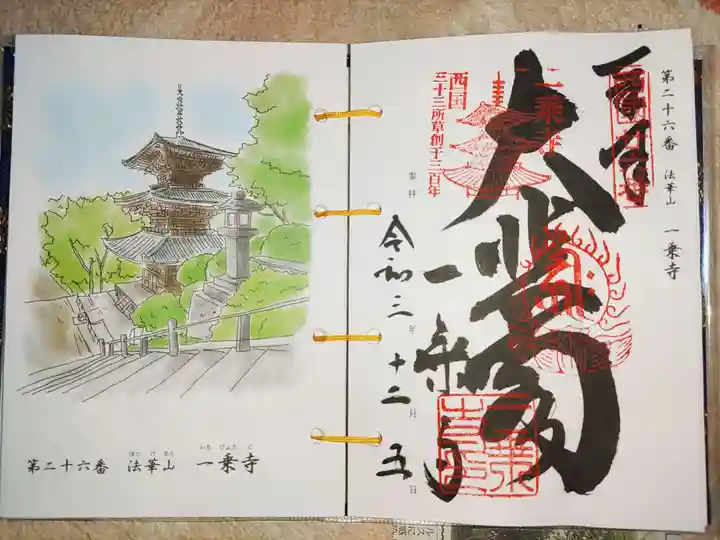 第二十六番 法華山 一乗寺
いち じょう じ
ほっ け さん
第二十六番 法華山 一乗寺
奉拝
西国
三十三所草創千三百年
一乗寺
大悲閣
一乗寺
令和三年十二月五日